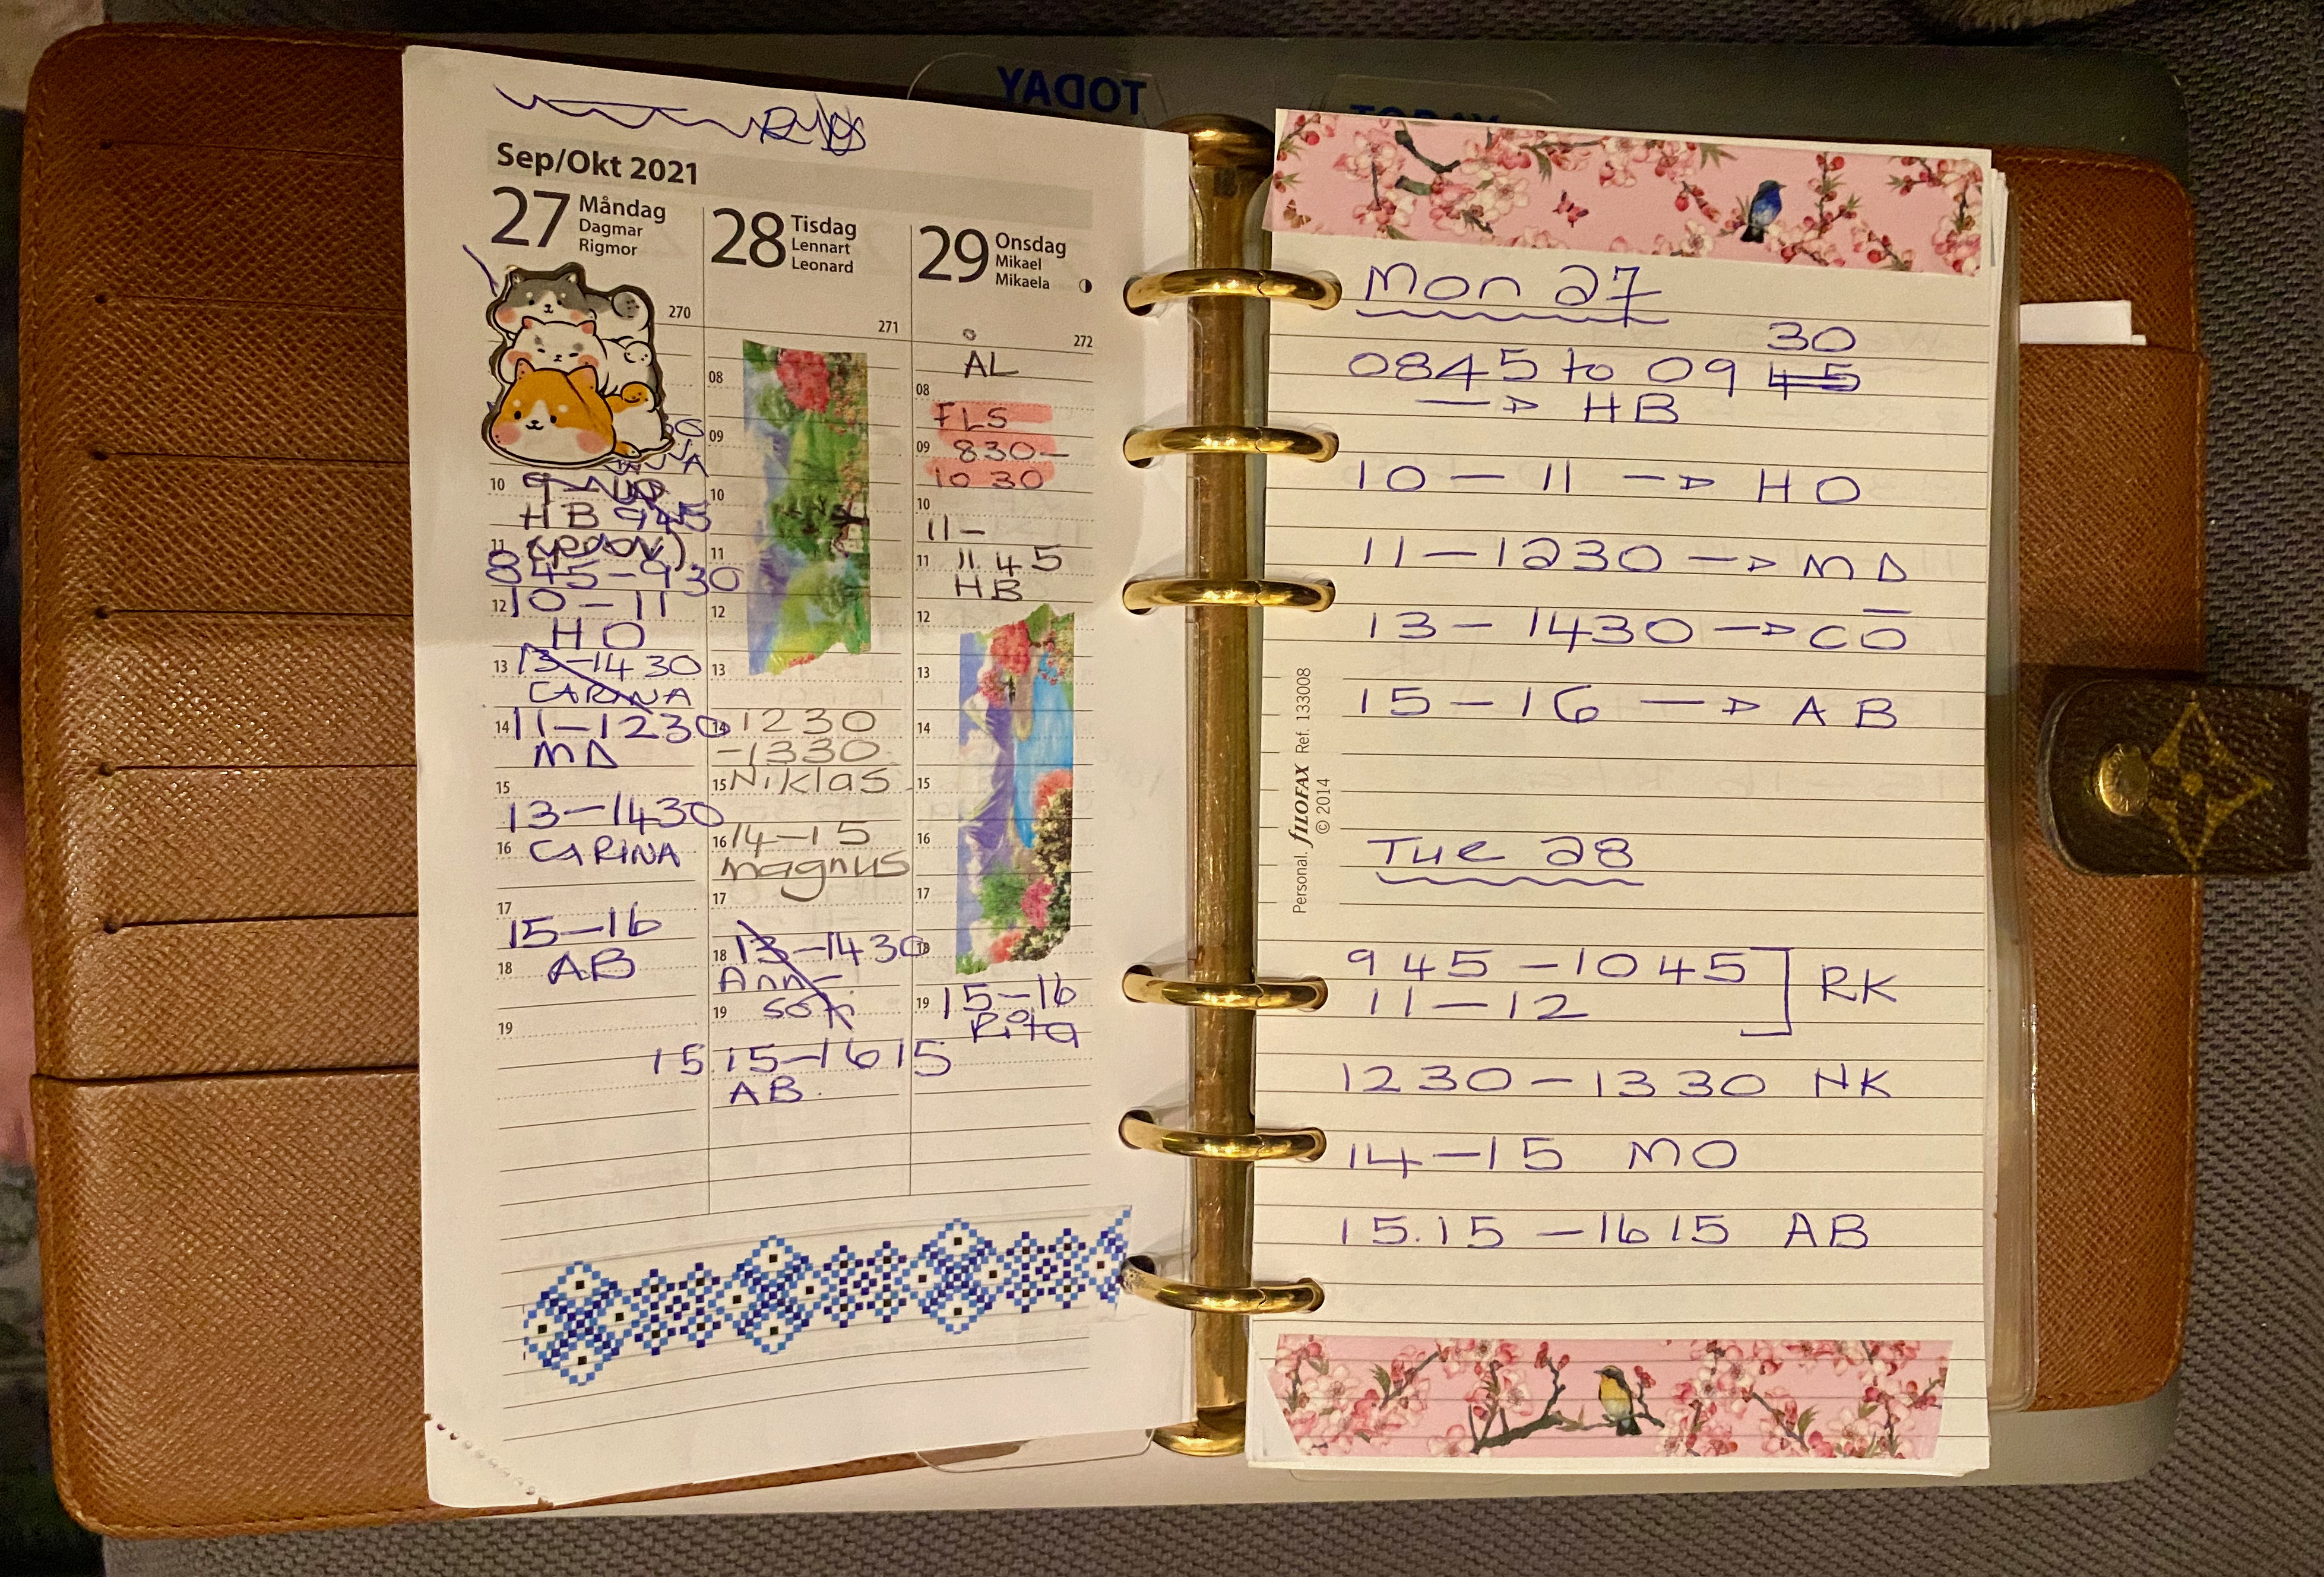 TODAY
Sep/Okt 2021
27 Måndag
Dagmar
Rigmor
270
10
HB 945
11
845-930
12 10-11
HO
13 13-1430
CARINA
14 11-1230
MD
15
13-1430
16 CARINA
17
15-16
18 AB
19
28 Tisdag
Lennart
Leonard
271
08
09
10
11
12
13
14 1230
-1330
15 Niklas
16 14-15
magnus
17
18 13-1430
Ann-
19
15.15-1615
AB.
29 Onsdag
Mikael
Mikaela
272
AL
08
FLS
09 830-
1030
10
11-
11 11.45
HB
12
13
14
15
16
17
18
19 15-16
Rita
Mon 27
30
0845 to 09 45
→ HB
10-11 → HO
11-1230 → MD
13-1430 → CŌ
15-16 → AB
Personal. fILOFAX Ref. 133008
© 2014
Tue 28
945-1045
11-12 ] RK
1230-1330 NK
14-15 MO
15.15-1615 AB